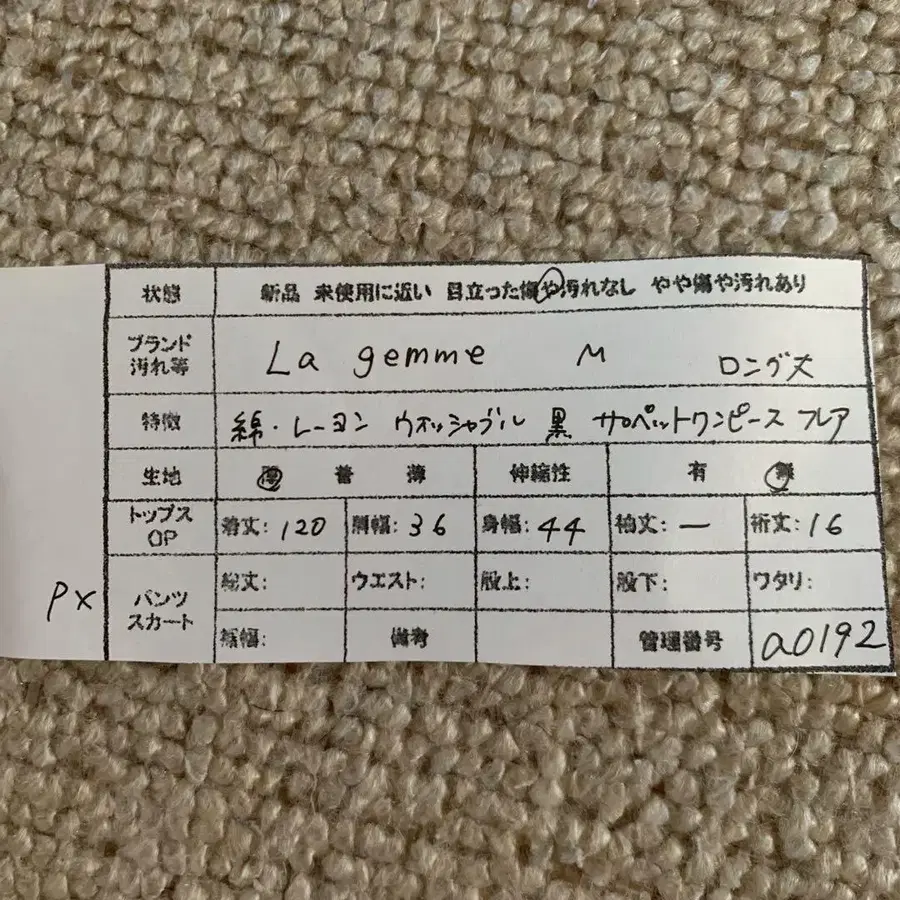 状態 新品 未使用に近い 目立った傷や汚れなし やや傷や汚れあり
ブランド
汚れ等
La gemme M ロング丈
特徴 綿・レーヨン ウォッシャブル 黒 サロペットワンピース フレア
生地 厚 普 薄 伸縮性 有 無
トップス
OP
着丈: 120 肩幅: 36 身幅: 44 袖丈: ー 裄丈: 16
Px
パンツ
スカート
総丈: ウエスト: 股上: 股下: ワタリ:
裾幅: 備考 管理番号 a0192